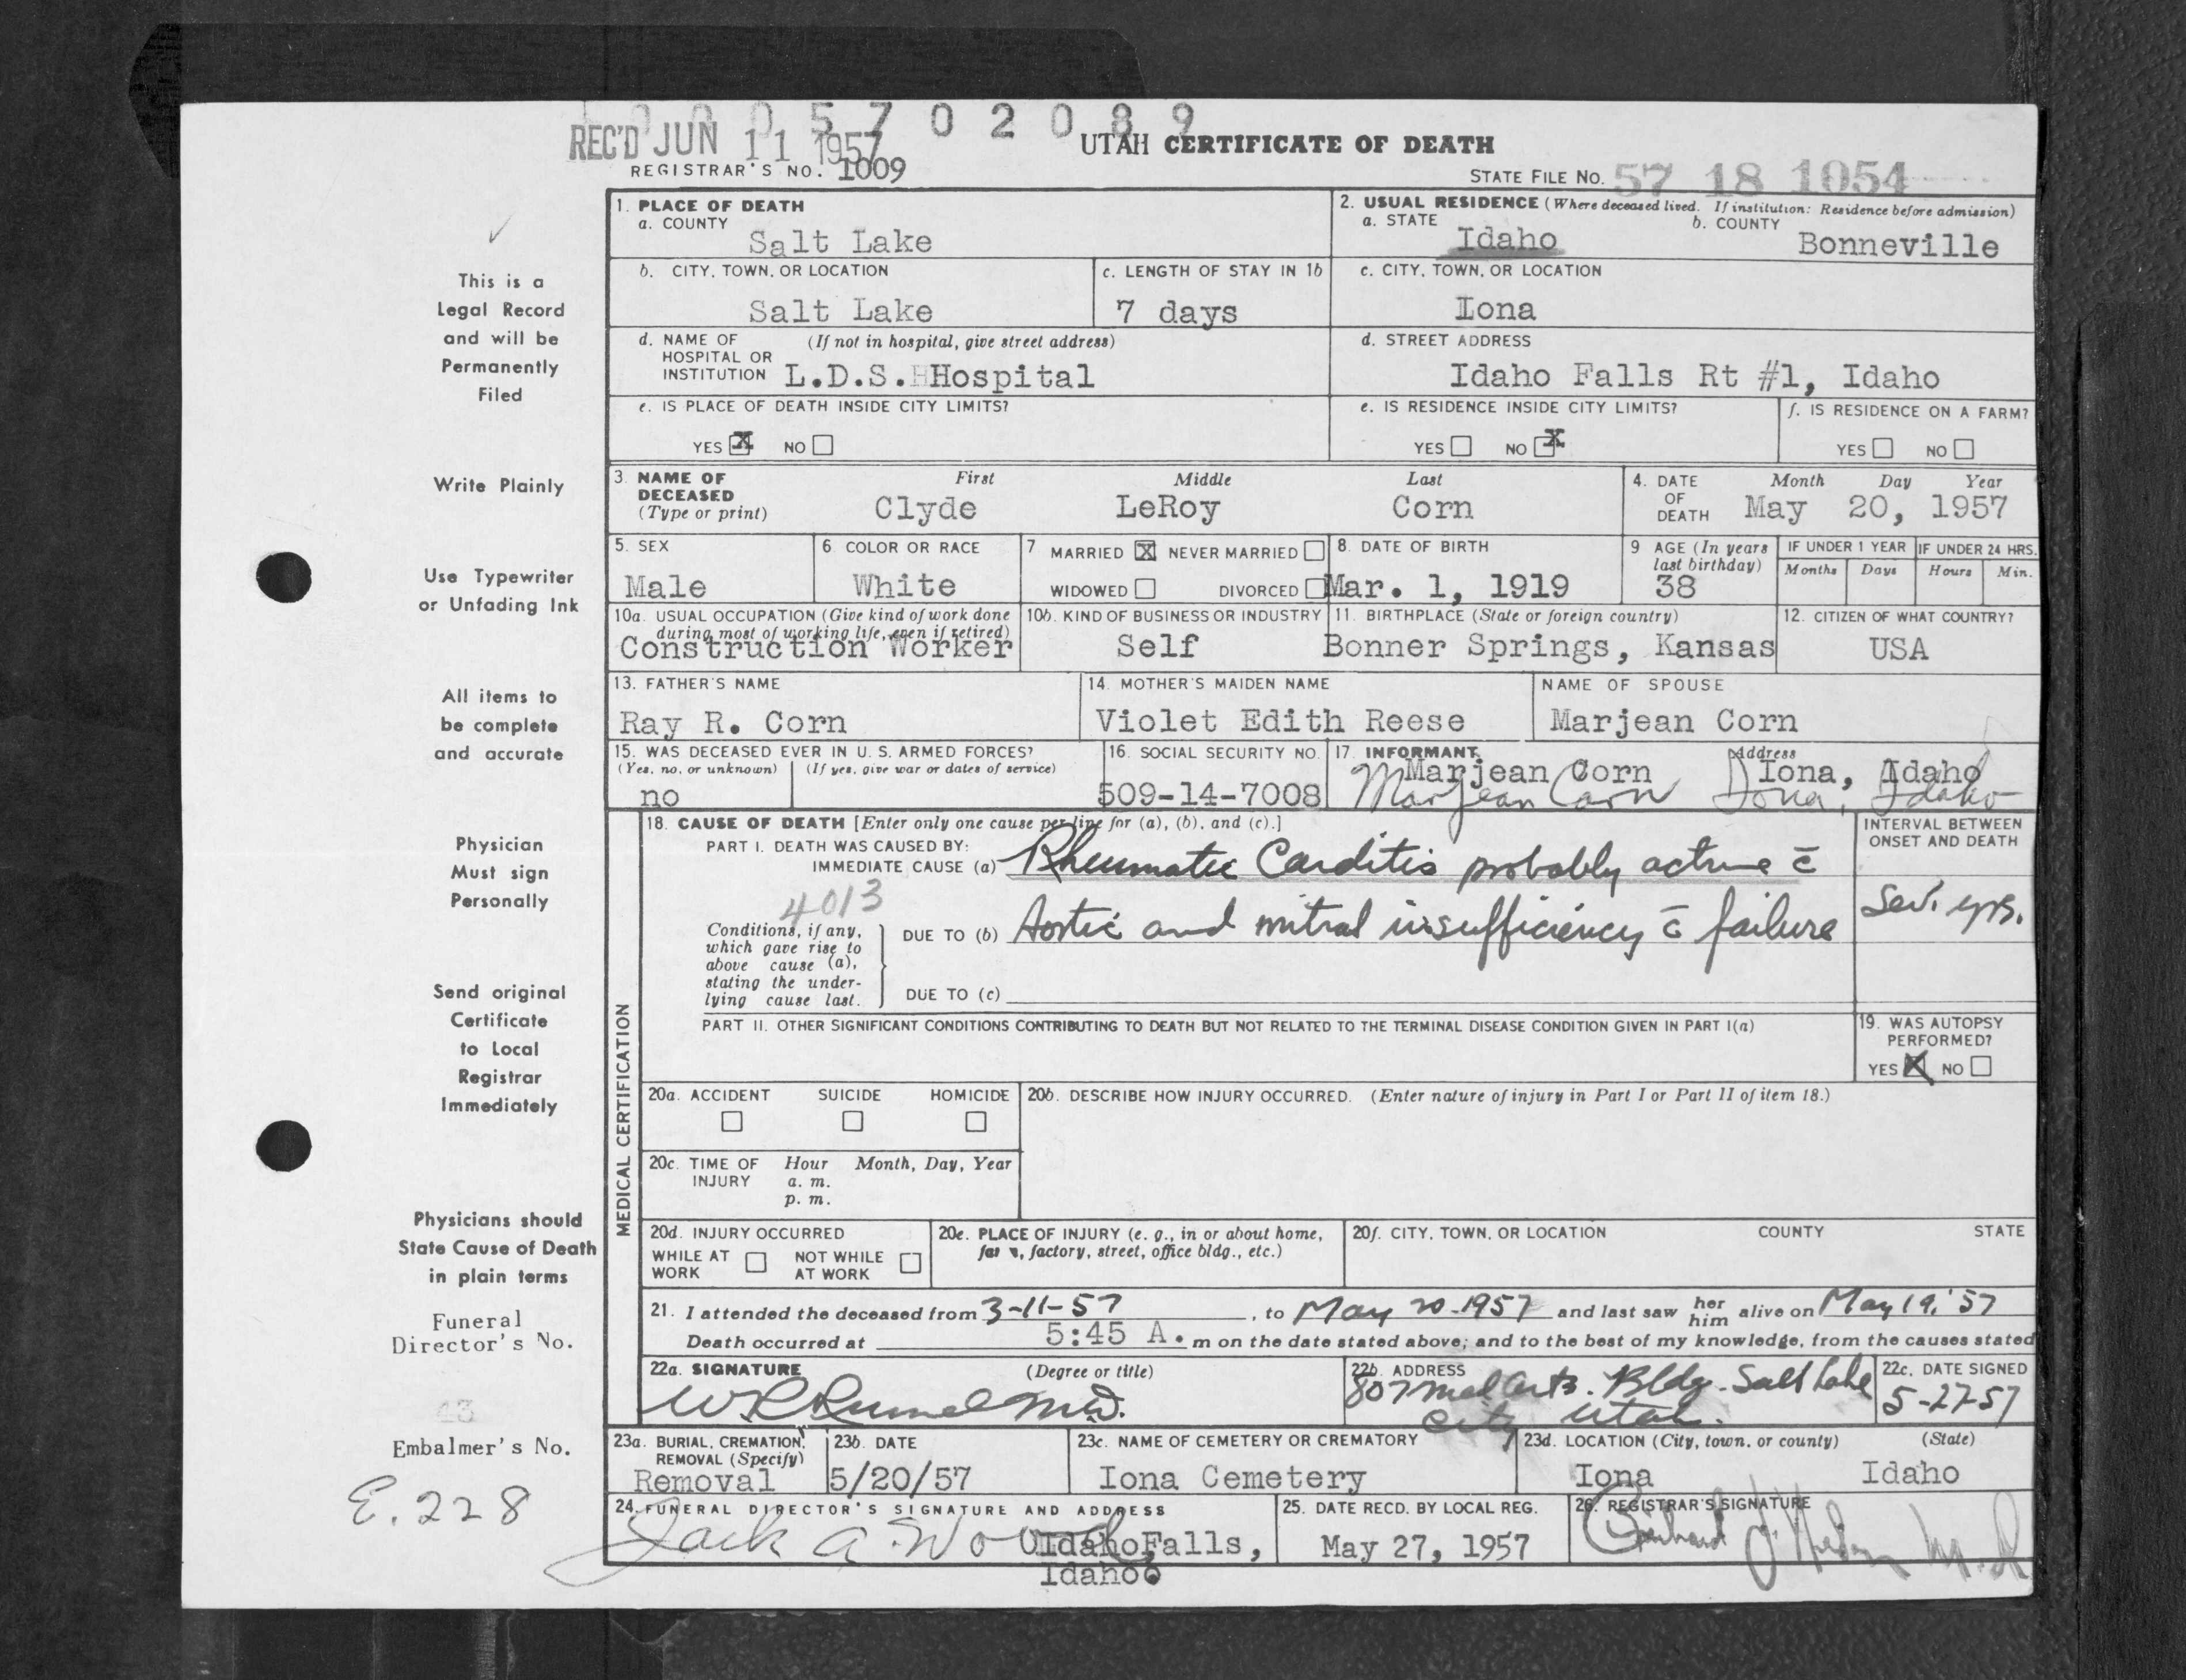 0005702089
REC'D JUN 11 1957
UTAH CERTIFICATE OF DEATH
REGISTRAR'S NO. 1009
STATE FILE NO. 57 18 1054
This is a
Legal Record
and will be
Permanently
Filed
Write Plainly
Use Typewriter
or Unfading Ink
All items to
be complete
and accurate
Physician
Must sign
Personally
Send original
Certificate
to Local
Registrar
Immediately
Physicians should
State Cause of Death
in plain terms
Funeral
Director's No.
43
Embalmer's No.
E. 228
1. PLACE OF DEATH
a. COUNTY
Salt Lake
2. USUAL RESIDENCE (Where deceased lived. If institution: Residence before admission)
a. STATE
Idaho
b. COUNTY
Bonneville
b. CITY, TOWN, OR LOCATION
Salt Lake
c. LENGTH OF STAY IN 1b
7 days
c. CITY, TOWN, OR LOCATION
Iona
d. NAME OF (If not in hospital, give street address)
HOSPITAL OR
INSTITUTION L.D.S. HHospital
d. STREET ADDRESS
Idaho Falls Rt #1, Idaho
e. IS PLACE OF DEATH INSIDE CITY LIMITS?
YES X NO
e. IS RESIDENCE INSIDE CITY LIMITS?
YES NO X
f. IS RESIDENCE ON A FARM?
YES NO
3. NAME OF
DECEASED
(Type or print)
First Middle Last
Clyde LeRoy Corn
4. DATE
OF
DEATH
Month Day Year
May 20, 1957
5. SEX
Male
6. COLOR OR RACE
White
7 MARRIED X NEVER MARRIED
WIDOWED DIVORCED
8. DATE OF BIRTH
Mar. 1, 1919
9 AGE (In years
last birthday)
38
IF UNDER 1 YEAR
Months Days
IF UNDER 24 HRS.
Hours Min.
10a. USUAL OCCUPATION (Give kind of work done
during most of working life, even if retired)
Construction Worker
10b. KIND OF BUSINESS OR INDUSTRY
Self
11. BIRTHPLACE (State or foreign country)
Bonner Springs, Kansas
12. CITIZEN OF WHAT COUNTRY?
USA
13. FATHER'S NAME
Ray R. Corn
14. MOTHER'S MAIDEN NAME
Violet Edith Reese
NAME OF SPOUSE
Marjean Corn
15. WAS DECEASED EVER IN U. S. ARMED FORCES?
(Yes, no, or unknown) (If yes, give war or dates of service)
no
16. SOCIAL SECURITY NO.
509-14-7008
17. INFORMANT Address
Marjean Corn Iona, Idaho
Marjean Corn Iona, Idaho
MEDICAL CERTIFICATION
18. CAUSE OF DEATH [Enter only one cause per line for (a), (b), and (c).]
PART I. DEATH WAS CAUSED BY:
IMMEDIATE CAUSE (a) Rheumatic Carditis probably active c̄
4013
Conditions, if any,
which gave rise to
above cause (a),
stating the under-
lying cause last.
DUE TO (b) Aortic and mitral insufficiency c̄ failure
DUE TO (c)
INTERVAL BETWEEN
ONSET AND DEATH
Sev. yrs.
PART II. OTHER SIGNIFICANT CONDITIONS CONTRIBUTING TO DEATH BUT NOT RELATED TO THE TERMINAL DISEASE CONDITION GIVEN IN PART I(a)
19. WAS AUTOPSY
PERFORMED?
YES X NO
20a. ACCIDENT SUICIDE HOMICIDE
20b. DESCRIBE HOW INJURY OCCURRED. (Enter nature of injury in Part I or Part II of item 18.)
20c. TIME OF Hour Month, Day, Year
INJURY a. m.
p. m.
20d. INJURY OCCURRED
WHILE AT NOT WHILE
WORK AT WORK
20e. PLACE OF INJURY (e. g., in or about home,
factory, street, office bldg., etc.)
20f. CITY, TOWN, OR LOCATION COUNTY STATE
21. I attended the deceased from 3-11-57, to May 20-1957 and last saw her him alive on May 19, '57
Death occurred at 5:45 A. m on the date stated above; and to the best of my knowledge, from the causes stated
22a. SIGNATURE (Degree or title)
W R Rumel M.D.
22b. ADDRESS
807 Med Arts. Bldg. Salt Lake
City Utah.
22c. DATE SIGNED
5-27-57
23a. BURIAL, CREMATION,
REMOVAL (Specify)
Removal
23b. DATE
5/20/57
23c. NAME OF CEMETERY OR CREMATORY
Iona Cemetery
23d. LOCATION (City, town, or county) (State)
Iona Idaho
24. FUNERAL DIRECTOR'S SIGNATURE AND ADDRESS
Jack A. Wood Idaho Falls,
Idaho
25. DATE RECD. BY LOCAL REG.
May 27, 1957
26. REGISTRAR'S SIGNATURE